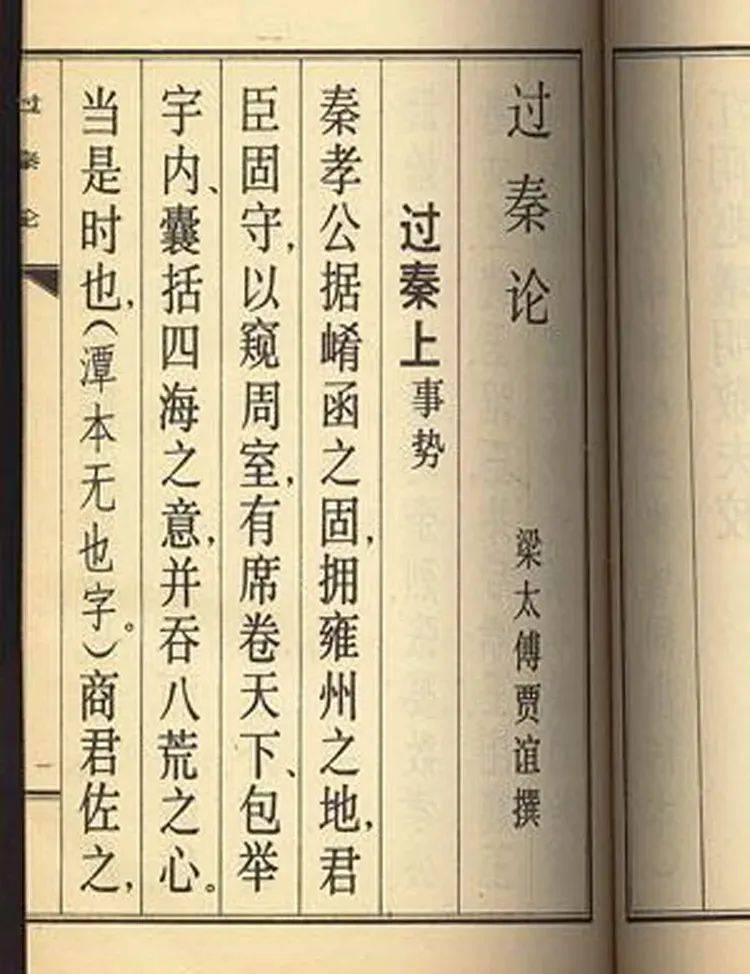 过秦论 梁太傅贾谊撰
过秦上事势
秦孝公据崤函之固，拥雍州之地，君
臣固守，以窥周室，有席卷天下、包举
宇内、囊括四海之意，并吞八荒之心。
当是时也，（潭本无也字。）商君佐之，
过秦论
一